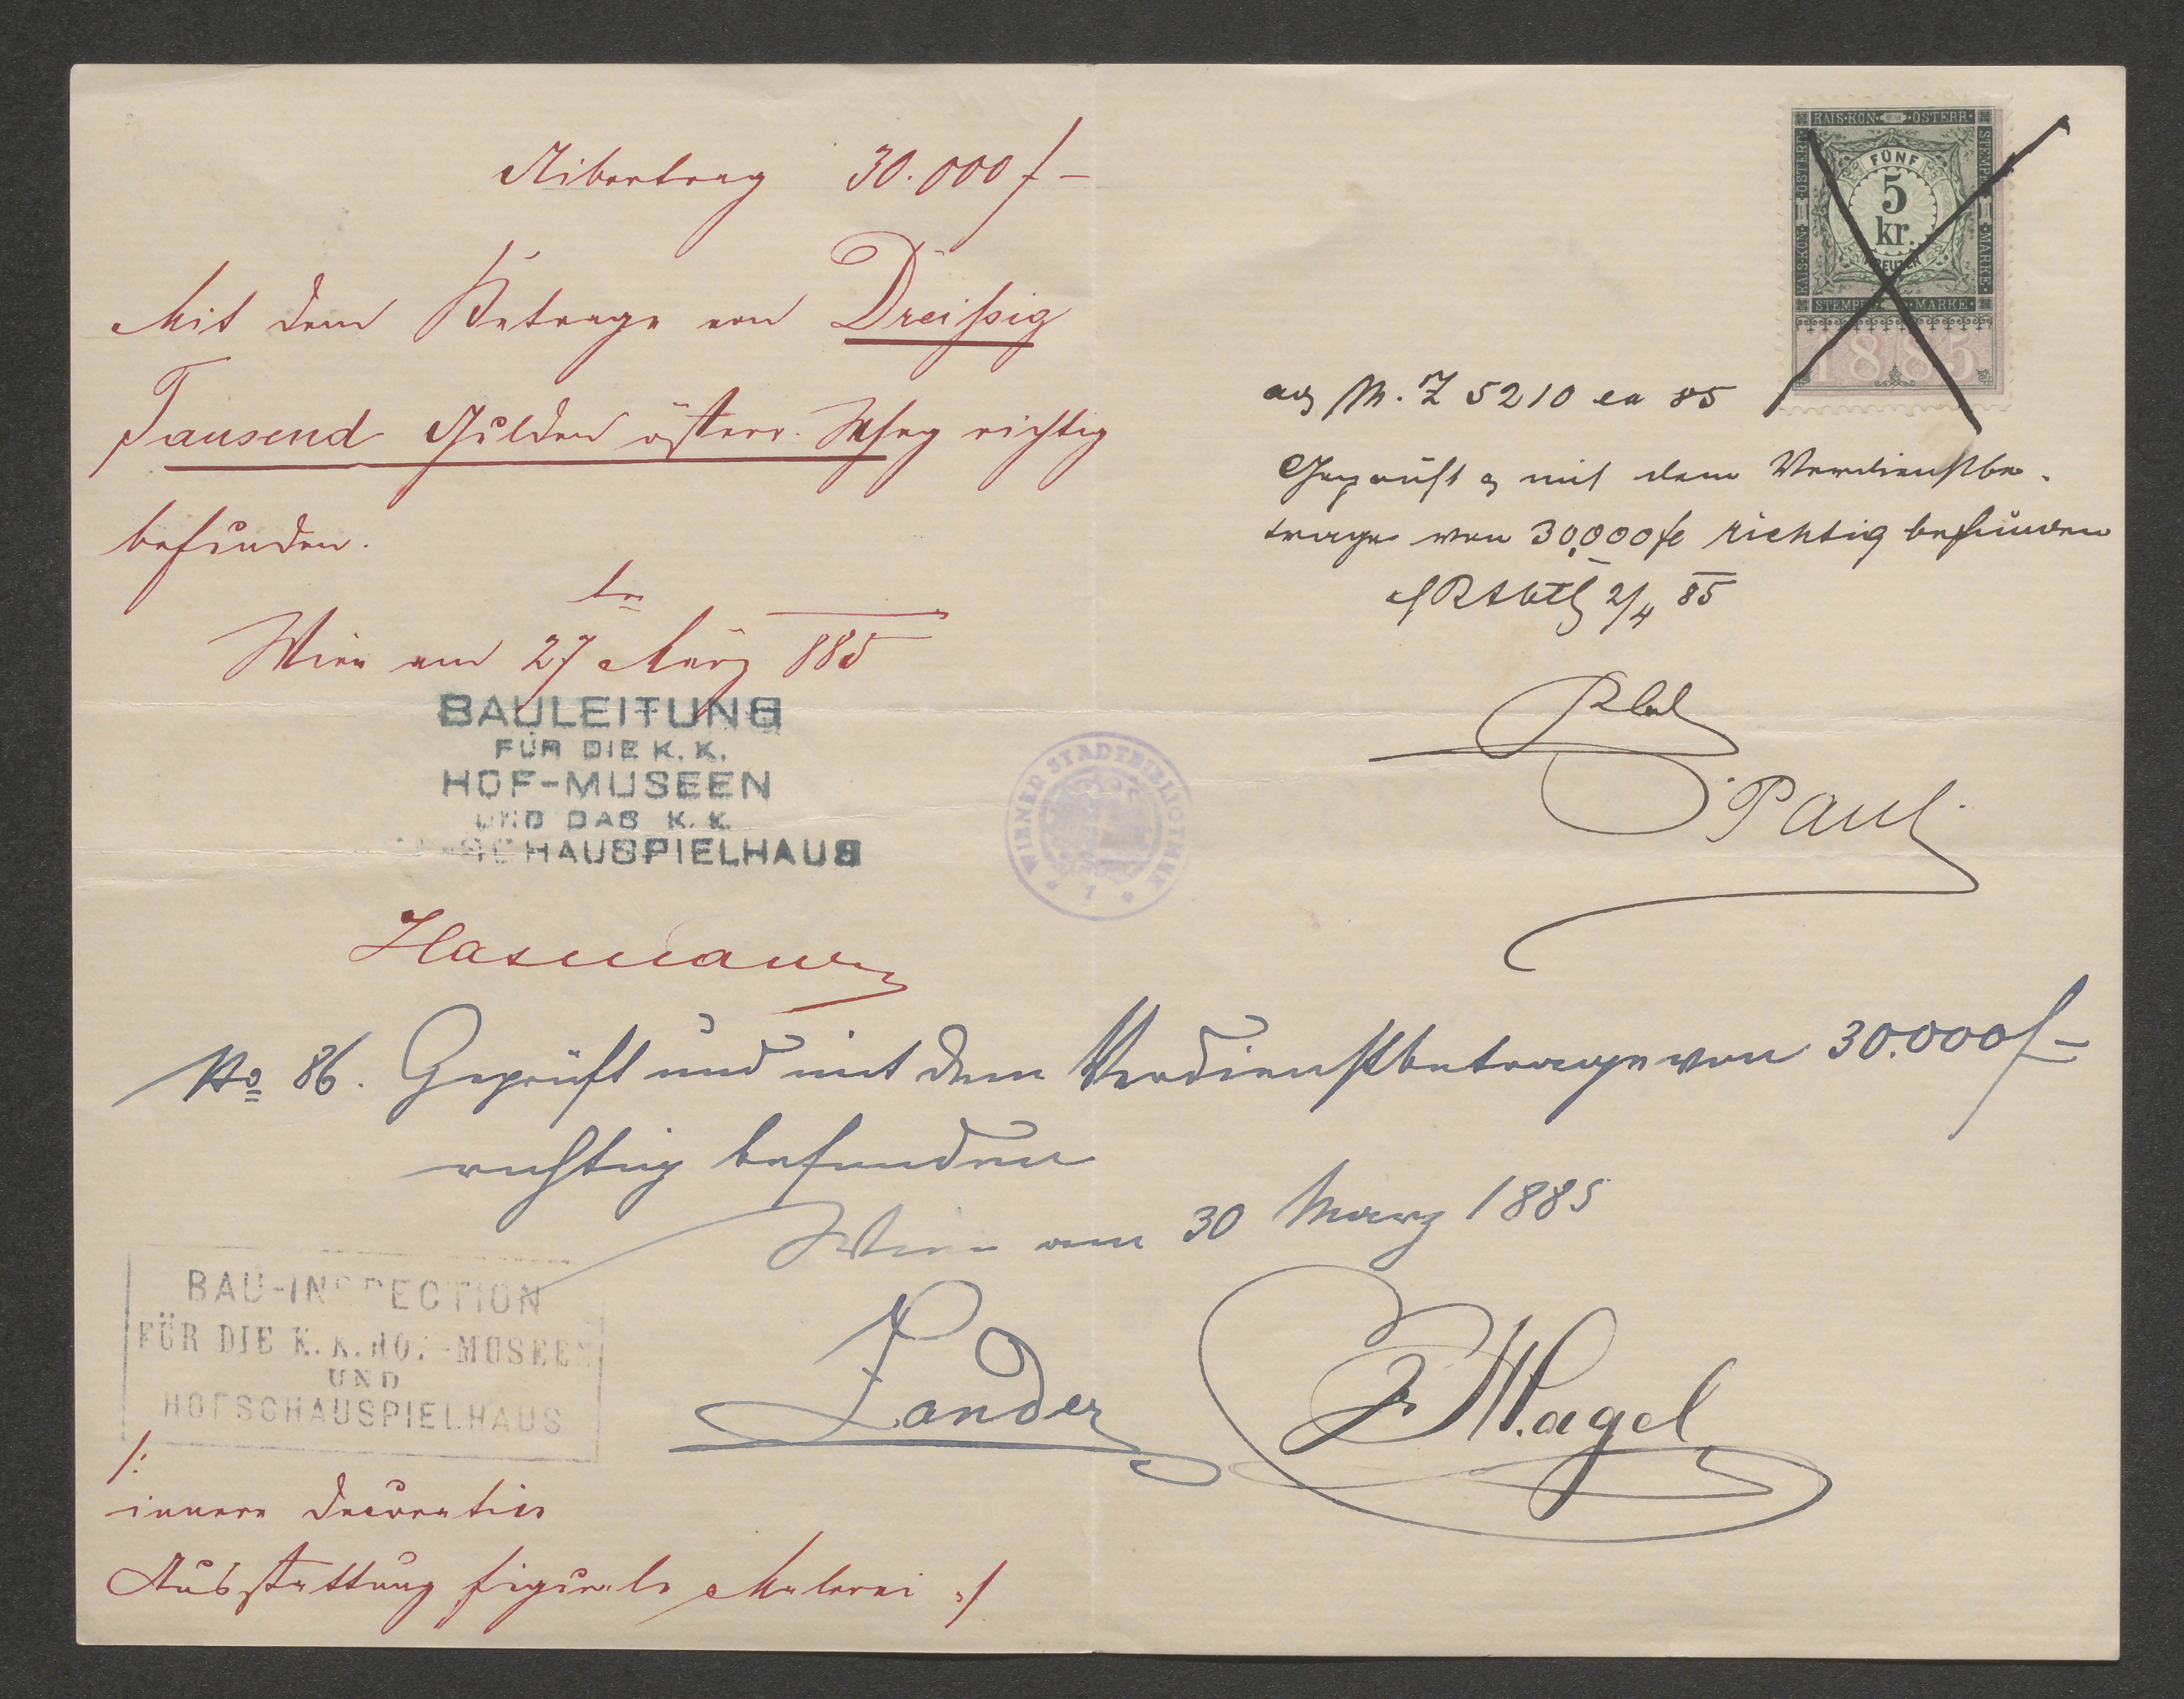 Uibertrag 30.000 f –
Mit dem Betrage von Dreißig
Tausend Gulden österr. Whrg richtig
befunden.
Wien am 27ten März 885
BAULEITUNG
FÜR DIE K. K.
HOF-MUSEEN
UND DAS K. K.
SCHAUSPIELHAUS
Hasenauer
KAIS·KON· ÖSTERR·
STEMPEL MARKE·
FÜNF
5
kr.
KREUZER
STEMPEL MARKE·
KAIS·KON· ÖSTERR·
1885
ad M. Z 5210 ex 85
Geprüft & mit dem Verdienstbe-
trage von 30,000 fl richtig befunden
2/4 85
Paul
WIENER STADTBIBLIOTHEK
No 86. Geprüft und mit dem Verdienstbetrage von 30.000 f –
richtig befunden
Wien am 30 März 1885
BAU-INSPECTION
FÜR DIE K. K. HOF-MUSEEN
UND
HOFSCHAUSPIELHAUS
Zander Nagel
/:
innere Decoration
Ausstattung figurale Malerei :/